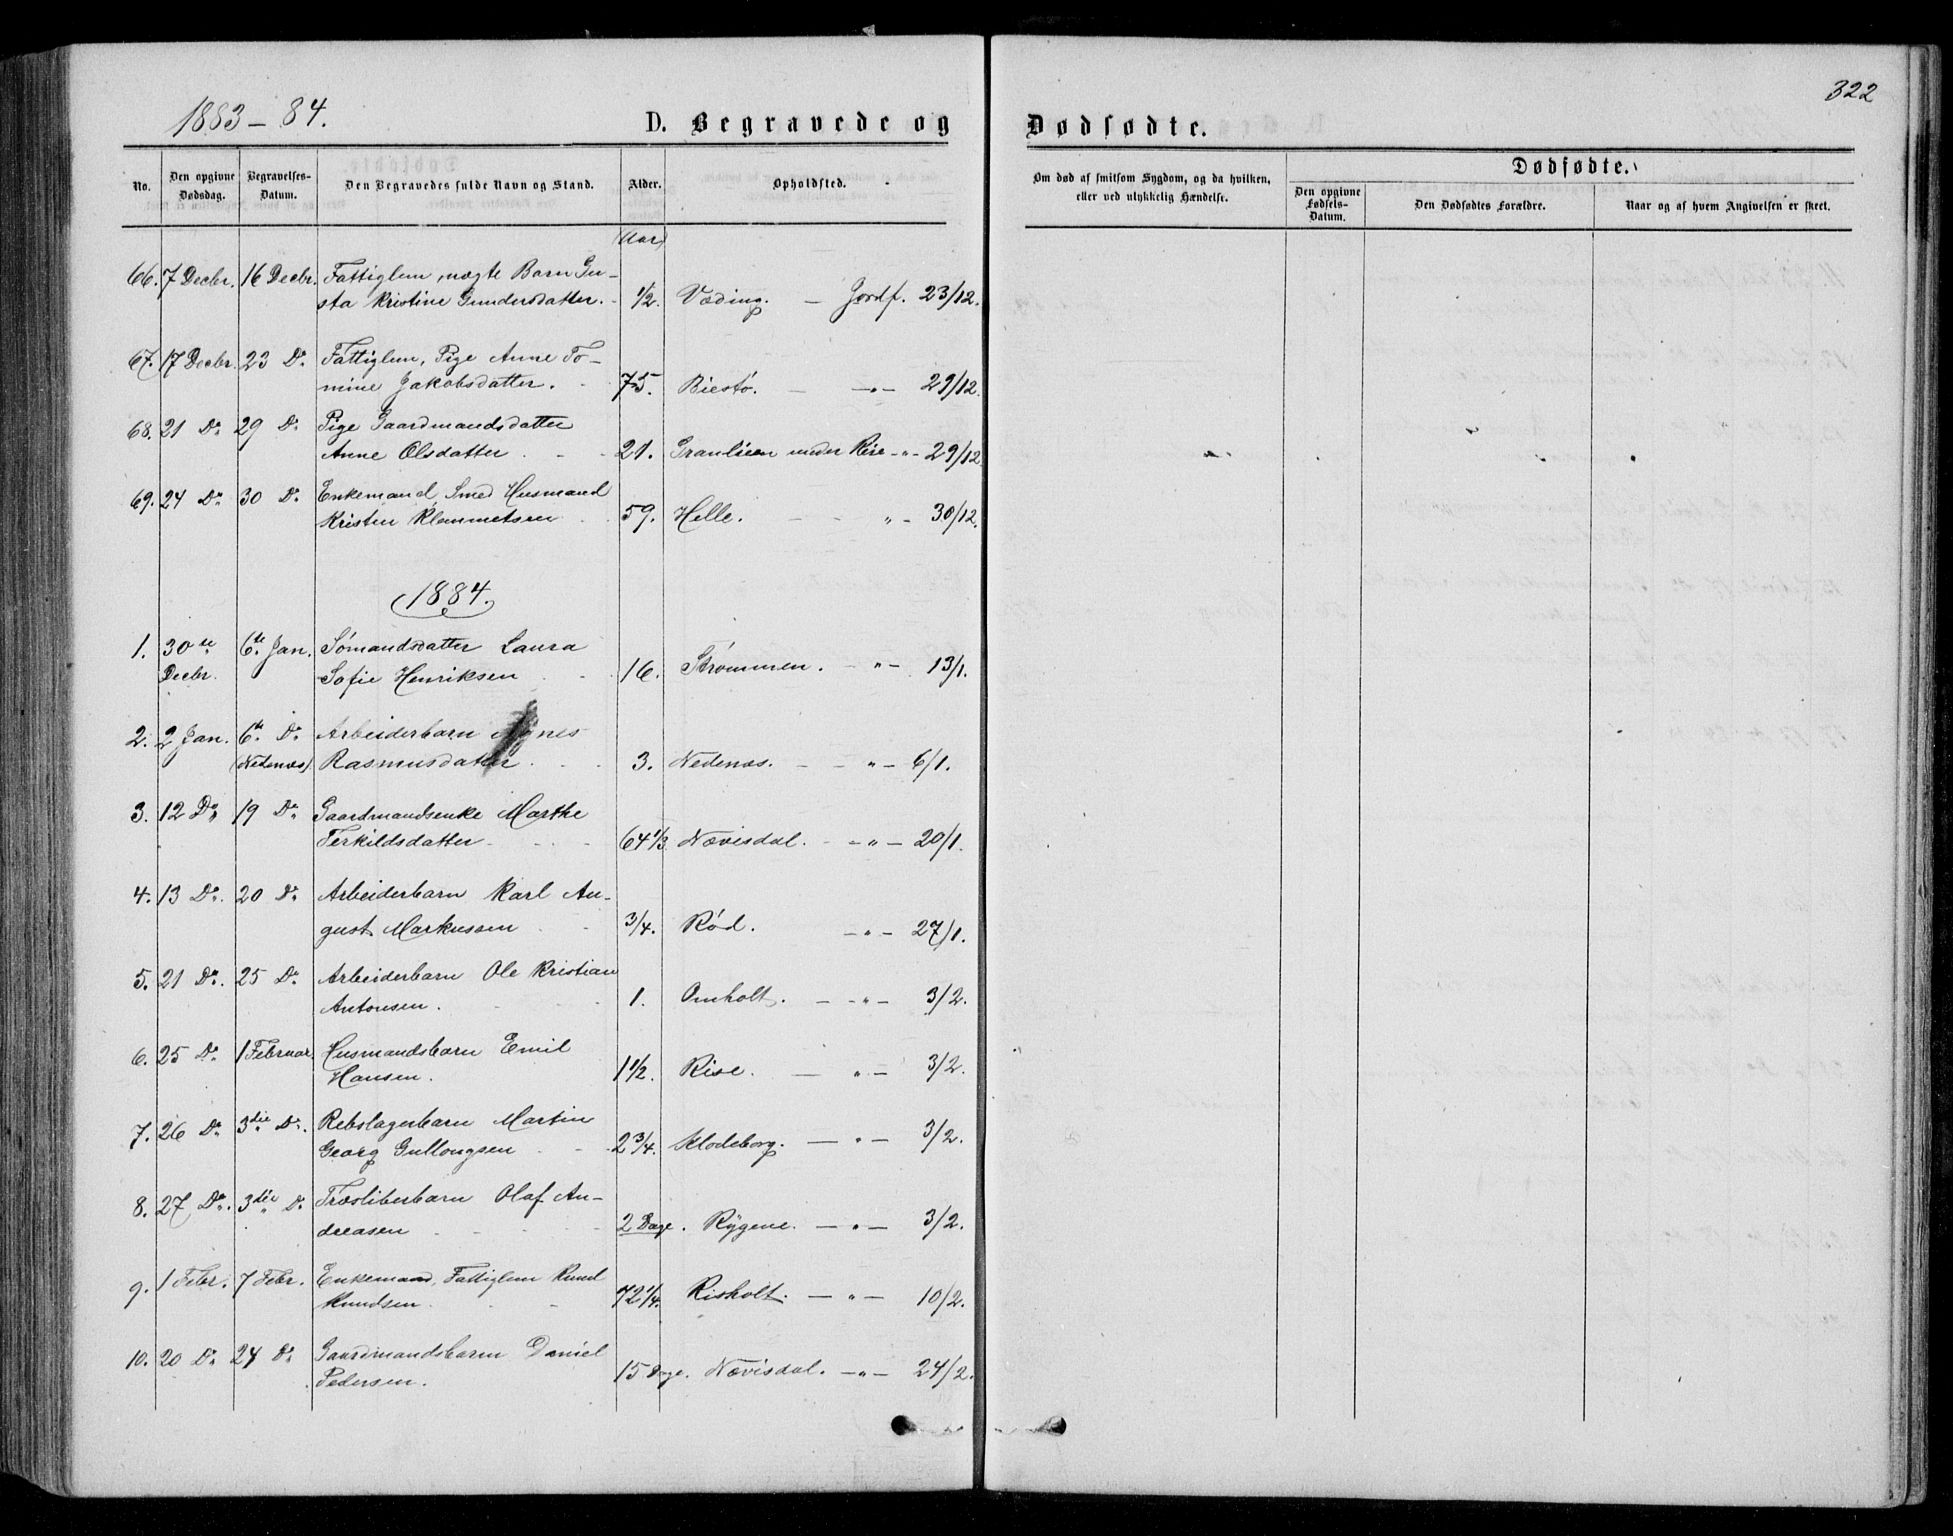 1883-84.
D. Begravede og
Dødsødte.
322
No.
Den opgivne Dødsdag.
Begravelses-Datum.
Den Begravedes fulde Navn og Stand.
Alder.
Opholdsted.
Om død af smitsom Sygdom, og da hvilken, eller ved ulykkelig Hændelse.
Dødfødte.
Den opgivne Fødsels-Datum.
Den Dødfødtes Forældre.
Naar og af hvem Angivelsen er skeet.
(Aar)
66. 7 Decbr. 16 Decbr. Fattiglem, uægte Barn Gu-
sta Kristine Gundersdatter. 1/2. Væding. — Jordf. 23/12.
67. 17 Decbr. 23 Do Fattiglem, Pige Anne To-
mine Jakobsdatter. 75. Biestø. — -"- 29/12.
68. 21 Do 29 Do Pige Gaardmandsdatter
Anne Olsdatter 21. Granlien under Rise -"- 29/12
69. 24 Do 30 Do Enkemand, Smed Husmand
Kristen Klemmetsen 59. Helle. - - "- 30/12.
1884.
1. 30te 6te Jan. Sømandsdatter Laura
Decbr. Sofie Henriksen 16. Strømmen. -"- 13/1.
2. 2 Jan. 6te Do Arbeiderbarn Agnes
(Nedenæs) Rasmusdatter 3. Nedenæs. - -"- 6/1.
3. 12 Do 19 Do Gaardmandsenke Marthe
Terkildsdatter 64 1/3 Nævisdal. - -"- 20/1.
4. 13 Do. 20 Do Arbeiderbarn Karl Au-
gust Markussen 3/4. Rød. -"- 27/1.
5. 21 Do. 25 Do Arbeiderbarn Ole Kristian
Antonsen. 1. Omholt. - -"- 3/2.
6. 25 Do 1 Februar. Husmandsbarn Emil
Hansen. 1 1/2. Rise. — "- 3/2.
7. 26 Do 3die Do. Rebslagerbarn Martin
Georg Gullongsen 2 3/4. Klodeborg. — "- 3/2.
8. 27 Do. 3die Do Træsliberbarn Olaf An-
dreasen 2 Dage. Rygene. — "- 3/2.
9. 1 Febr. 7 Febr. Enkemand, Fattiglem Knud
Knudsen. 72 1/4. Risholt. — "- 10/2.
10. 20 Do 24 Do Gaardmandsbarn Daniel
Pedersen. 15 Dage. Nævisdal. -"- 24/2.